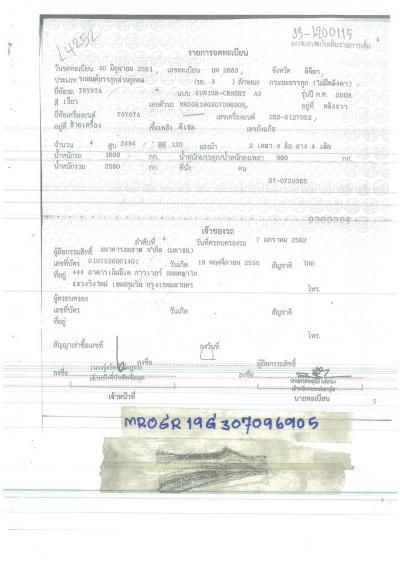 L4252
55-1200115
4
รายการจดทะเบียน
วันจดทะเบียน 30 มิถุนายน 2551 เลขทะเบียน บต 2683 จังหวัด พิจิตร
ประเภท รถยนต์บรรทุกส่วนบุคคล (รย. 3 ) ลักษณะ กระบะบรรทุก (ไม่มีหลังคา)
ยี่ห้อรถ TOYOTA แบบ KUN15R-CRMSHT A3 รุ่นปี ค.ศ. 2008
สี เขียว เลขตัวรถ MR0GR19G307096905 อยู่ที่ หลังขวา
ยี่ห้อเครื่องยนต์ TOYOTA เลขเครื่องยนต์ 2KD-6127052
อยู่ที่ ข้างเครื่อง เชื้อเพลิง ดีเซล เลขถังแก๊ส
จำนวน 4 สูบ 2494 ซีซี 120 แรงม้า 2 เพลา 4 ล้อ ยาง 4 เส้น
น้ำหนักรถ 1600 กก. น้ำหนักบรรทุก/น้ำหนักลงเพลา 980 กก.
น้ำหนักรวม 2580 กก. ที่นั่ง คน
57-0729365
เจ้าของรถ
ลำดับที่ 4 วันที่ครอบครองรถ 7 มกราคม 2562
ผู้ถือกรรมสิทธิ์ ธนาคารธนชาต จำกัด (มหาชน)
เลขที่บัตร 0107536001401 วันเกิด 18 พฤศจิกายน 2536 สัญชาติ ไทย
ที่อยู่ 444 อาคารเอ็มบีเค ทาวเวอร์ ถนนพญาไท
แขวงวังใหม่ เขตปทุมวัน กรุงเทพมหานคร โทร.
ผู้ครอบครอง
เลขที่บัตร วันเกิด สัญชาติ
ที่อยู่
โทร.
สัญญาเช่าซื้อเลขที่ ลงวันที่
ลงชื่อ ผู้ถือกรรมสิทธิ์
ลงชื่อ ลงชื่อ
เจ้าหน้าที่ นายทะเบียน
5
MR0GR19G307096905